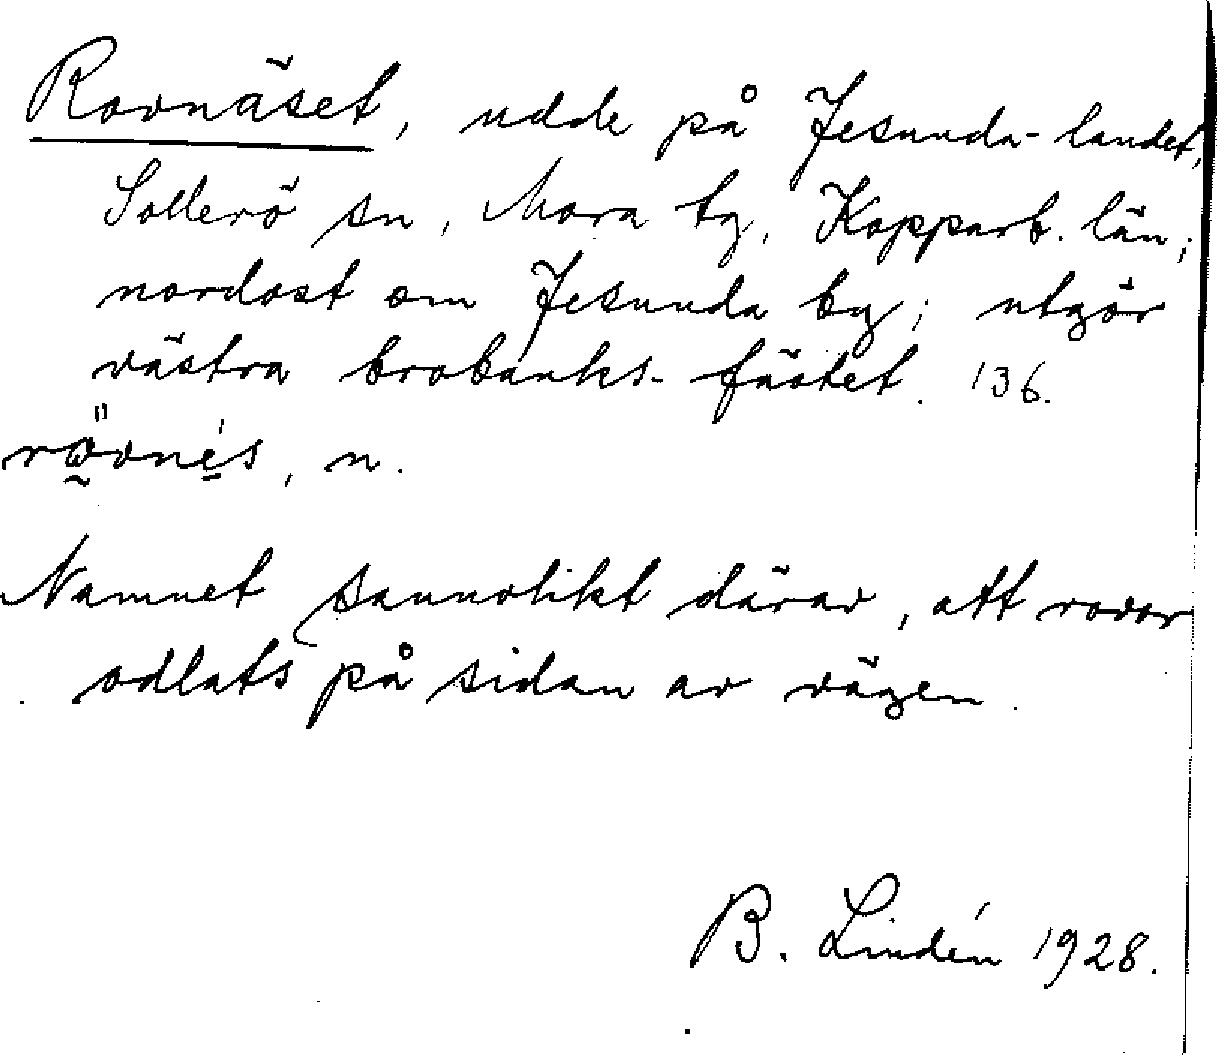 Rovnäset, udde på Jesunda-landet,
Sollerö sn, Mora tg, Kopparb. län;
nordost om Jesunda by; utgör
västra brobanks-fästet. 136.
, n.
Namnet sannolikt därav, att rovor
odlats på sidan av vägen.
B. Lindén 1928.